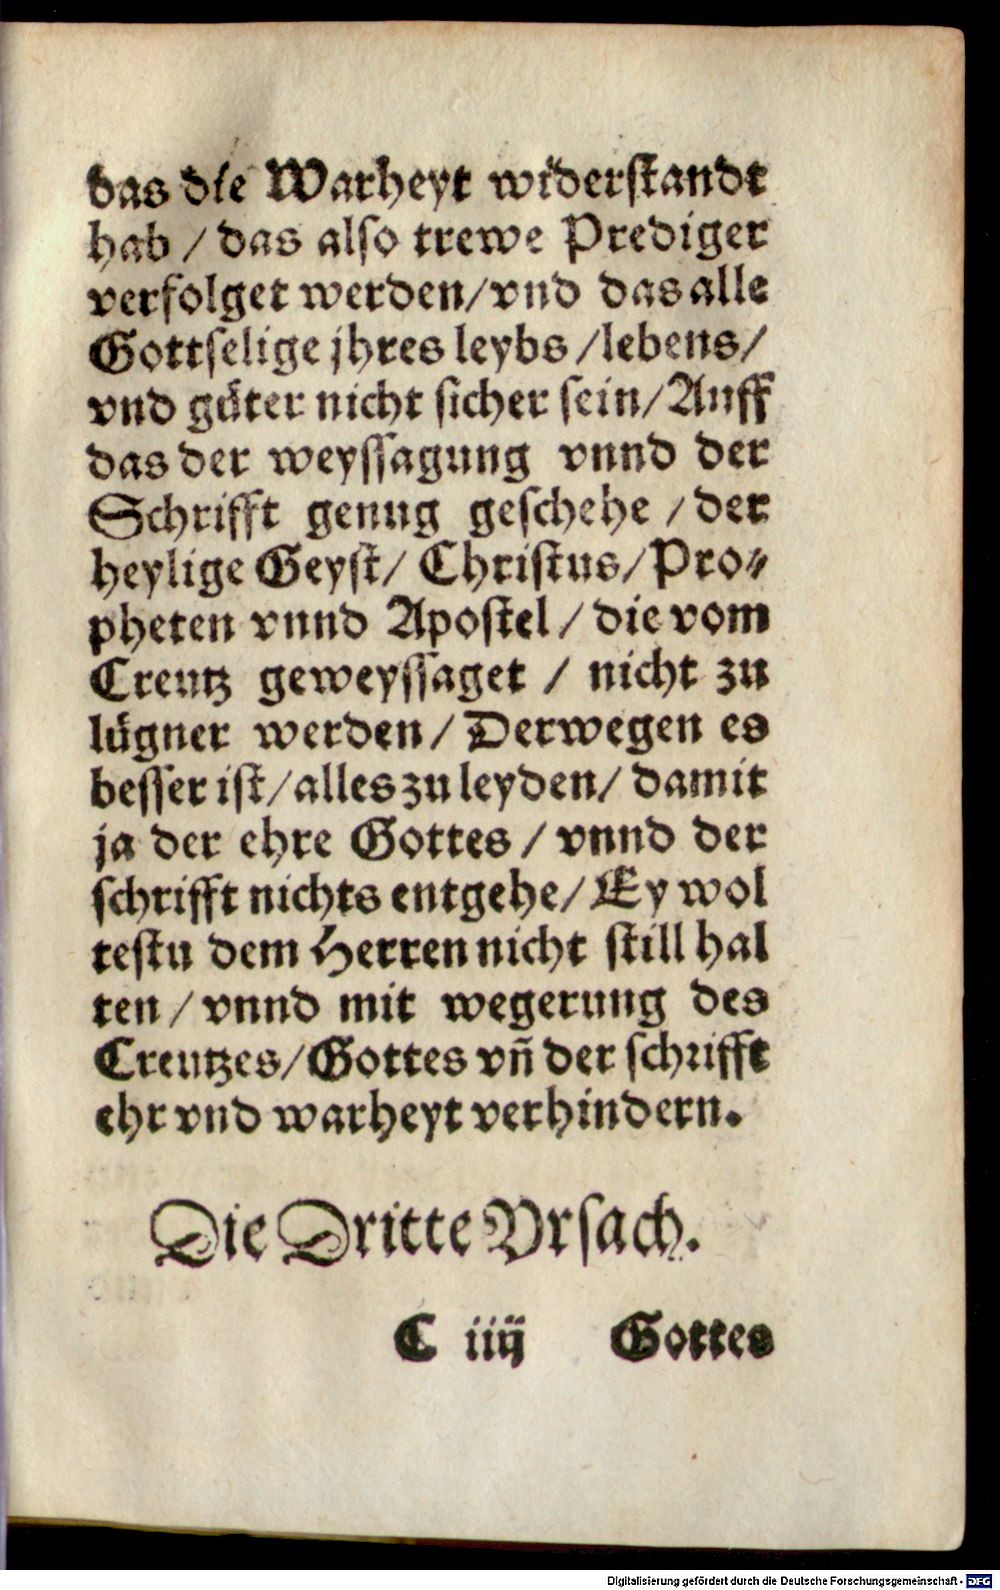 das die Warheyt widerstandt
hab / das also trewe Prediger
verfolget werden/vnd das alle
Gottselige jhres leybs /lebens/
vnd gůter nicht sicher sein/Auff
das der weyssagung vnnd der
Schrifft genug geschehe / der
heylige Geyst/ Christus/Pro⸗
pheten vnnd Apostel / die vom
Creutz geweyssaget / nicht zu
lůgner werden/ Derwegen es
besser ist/alles zu leyden/ damit
ja der ehre Gottes / vnnd der
schrifft nichts entgehe/ Ey wol
testu dem Herren nicht still hal
ten / vnnd mit wegerung des
Creutzes/Gottes vñ der schrifft
ehr vnd warheyt verhindern.
Die Dritte Vrsach.
C iiij Gottes
Digitalisierung gefördert durch die Deutsche Forschungsgemeinschaft - DFG